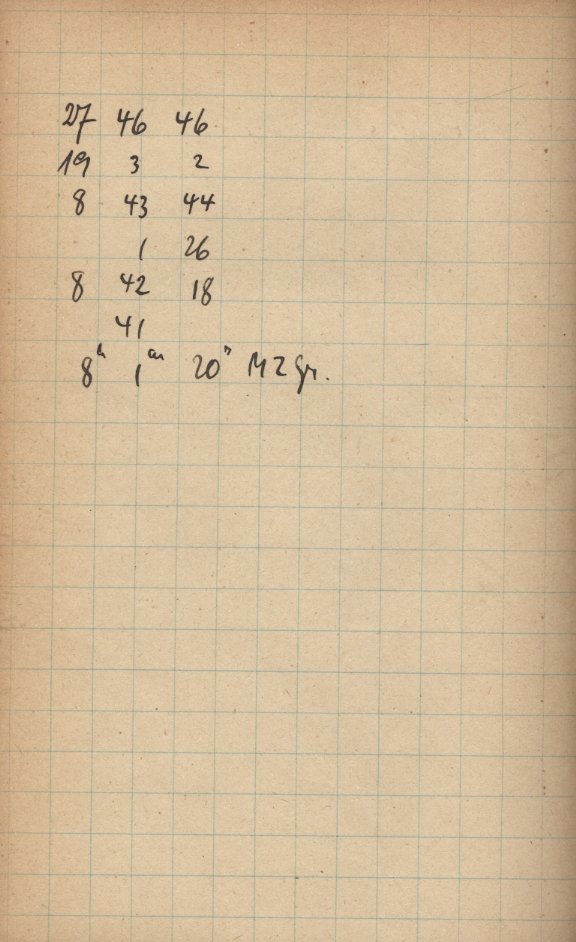 27 46 46
19 3 2
8 43 44
1 26
8 42 18
41
8h 1m 20s MZGr.